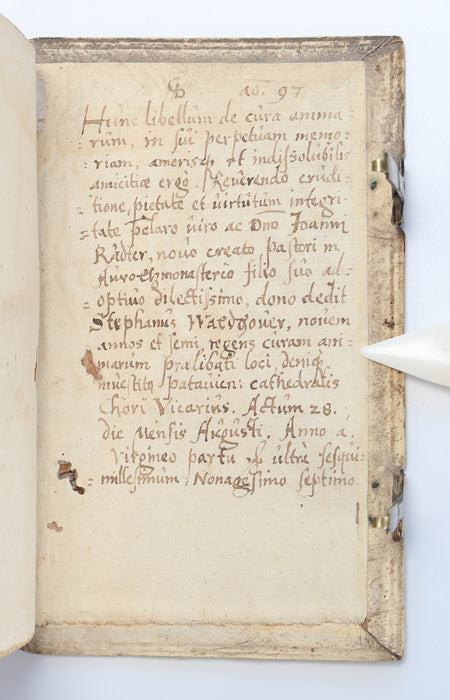 ao. 97
Hunc libellum de cura anima=
=rum, in sui perpetuam memo=
=riam, amorisq et indissolubilis
amicitiæ ergo. Reverendo erudi=
=tione, pietate et virtutum integri=
=tate p̄claro viro ac Dn̄o Joanni
Rädter, novo creato pastori in
monasterio filio suo ad=
=optivo dilectissimo, dono dedit
Stephanus novem
annos et semi regens curam ani=
=marum prælibati loci,
patavien: cathedralis
Chori Vicarius. Actum 28.
die Mensis Augusti. Anno a
Virgineo partu ultra sesqui=
=millesimum, Nonagesimo septimo.